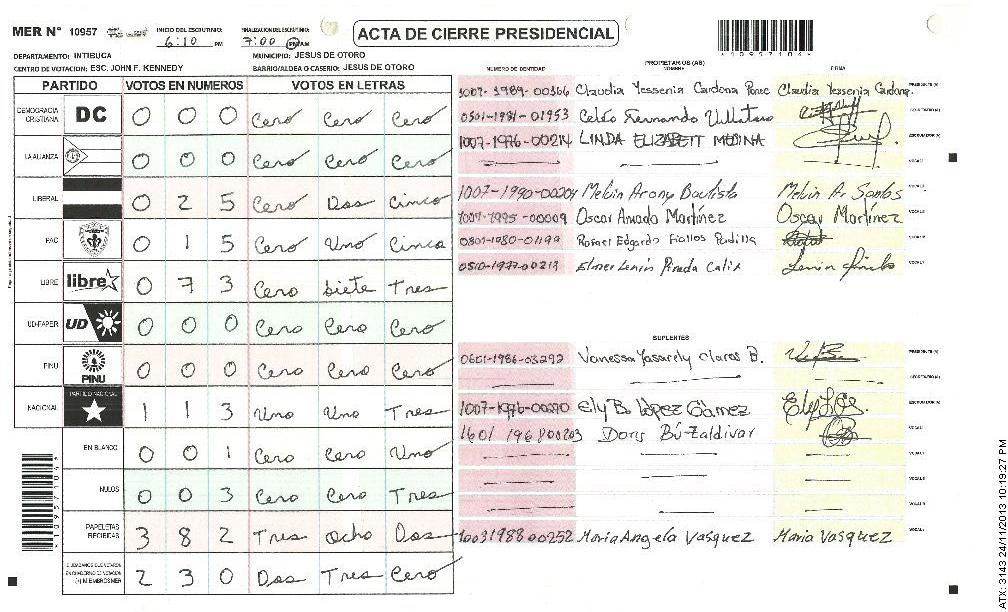 MER N° 10957 INICIO DEL ESCRUTINIO: 6:10 PM FINALIZACION DEL ESCRUTINIO: 7:00 PM AM ACTA DE CIERRE PRESIDENCIAL
DEPARTAMENTO: INTIBUCA MUNICIPIO: JESUS DE OTORO
CENTRO DE VOTACION: ESC. JOHN F. KENNEDY BARRIO/ALDEA O CASERIO: JESUS DE OTORO
PARTIDO VOTOS EN NUMEROS VOTOS EN LETRAS
DEMOCRACIA CRISTIANA DC 0 0 0 Cero Cero Cero
LA ALIANZA 0 0 0 Cero Cero Cero
LIBERAL 0 2 5 Cero Dos Cinco
PAC 0 1 5 Cero Uno Cinco
LIBRE libre 0 7 3 Cero Siete Tres
UD-FAPER UD 0 0 0 Cero Cero Cero
PINU PINU 0 0 0 Cero Cero Cero
NACIONAL PARTIDO NACIONAL 1 1 3 Uno Uno Tres
EN BLANCO 0 0 1 Cero Cero Uno
NULOS 0 0 3 Cero Cero Tres
PAPELETAS RECIBIDAS 3 8 2 Tres Ocho Dos
2 3 0 Dos Tres Cero
*10957104*
NUMERO DE IDENTIDAD PROPIETARIOS (AS) NOMBRE FIRMA
1007-1989-00366 Claudia Yessenia Cardona Claudia Yessenia Cardona PRESIDENTE (A)
0501-1981-01953 Celeo Fernando SECRETARIO (A)
1007-1976-00214 LINDA ELIZABETT MEDINA ESCRUTADOR (A)
VOCAL I
1007-1990-00204 Melvin Arony Bautista Melvin A. Santos VOCAL II
1007-1995-00009 Oscar Amado Martínez Oscar Martínez VOCAL III
0801-1980-01199 Rafael Edgardo Fiallos Padilla
0510-1977-00213 Elmer Lenin Pineda Calix
SUPLENTES
0601-1986-03292 Vanessa Yasarely Claros B. PRESIDENTE (A)
SECRETARIO (A)
1007-1976-00270 Ely B López Gámez ESCRUTADOR (A)
1601 1968 00203 Doris Bú Zaldivar VOCAL I
10031988 00252 Maria Angela Vasquez Maria Vasquez
ATX: 3143 24/11/2013 10:19:27 PM